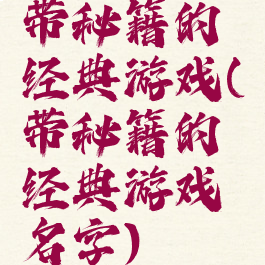 带秘籍的
经典游戏(
带秘籍的
经典游戏
名字)